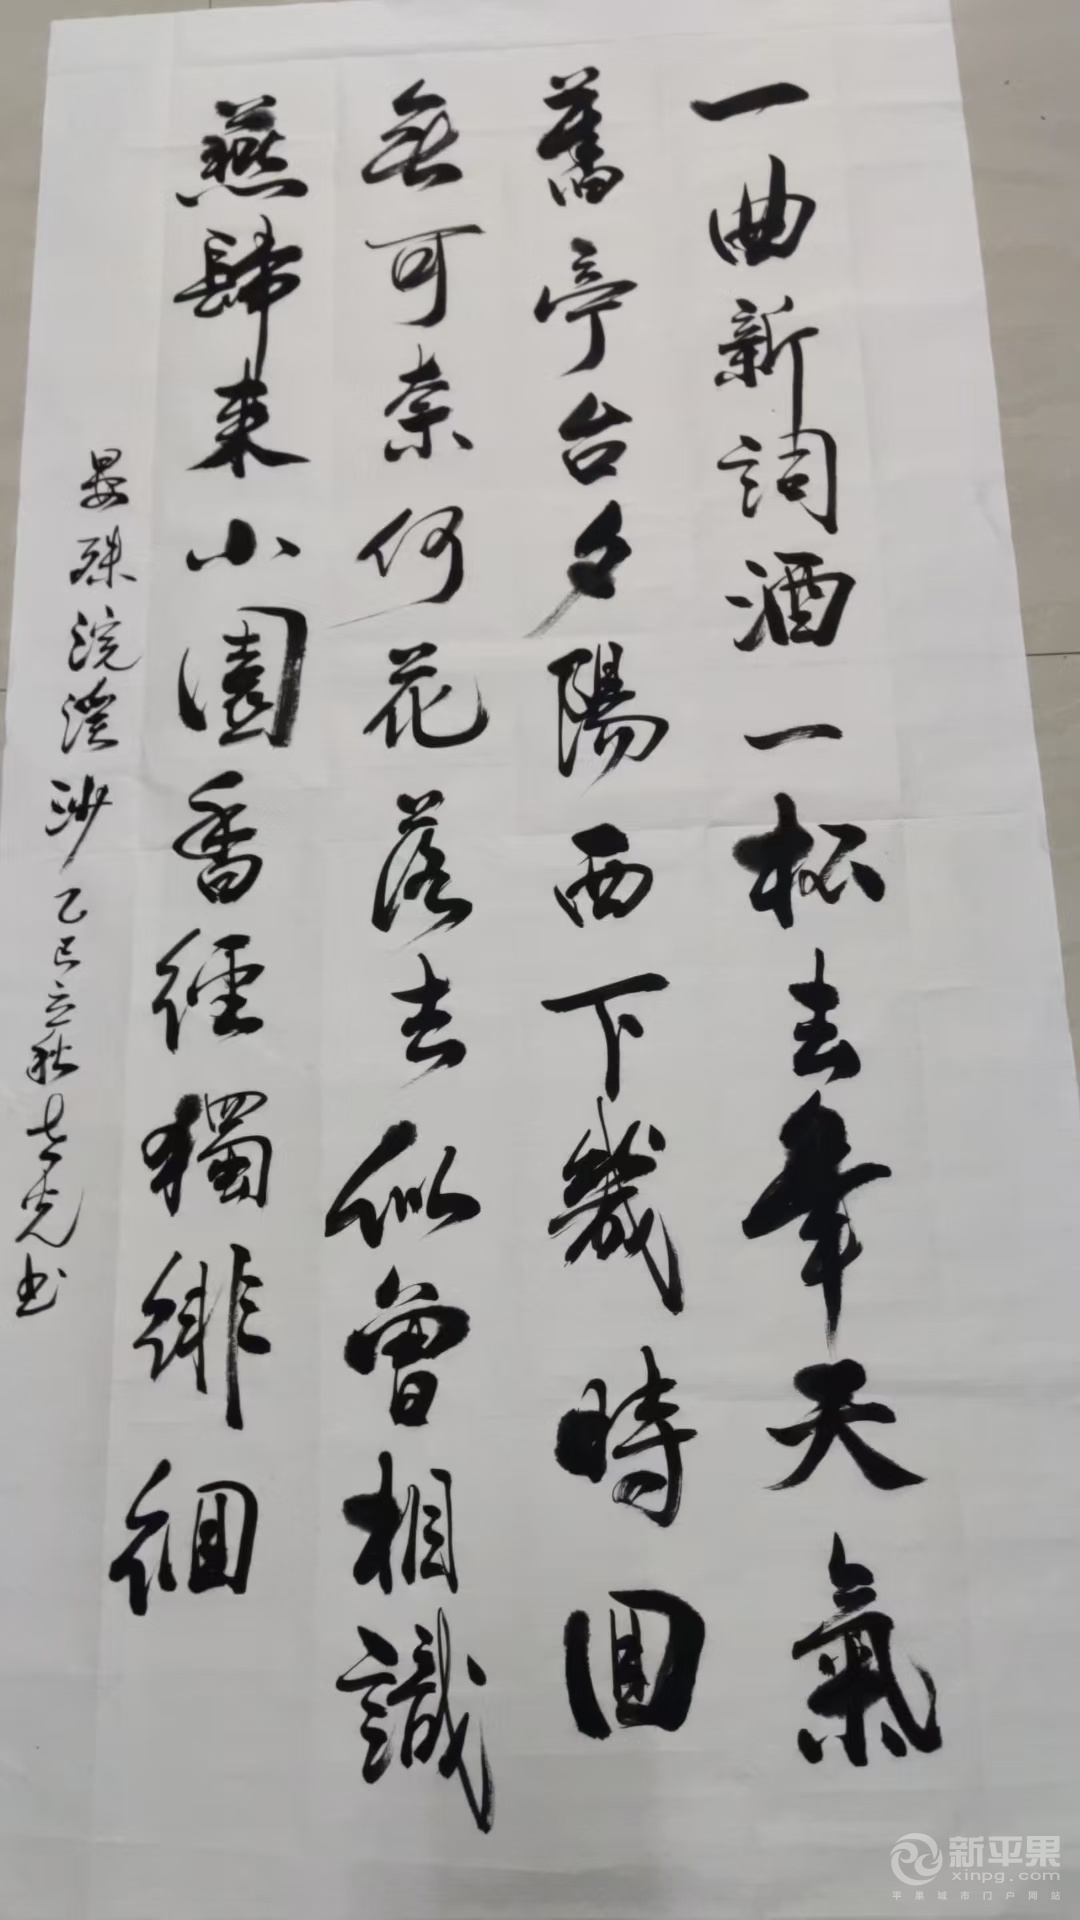 一曲新詞酒一松去年天氣
舊亭台夕陽西下幾時回
無可奈何花落去似曾相識
燕歸来小園香徑獨徘徊
晏殊浣溪沙乙巳立秋志光书
新平果
xinpg.com
平果城市门户网站